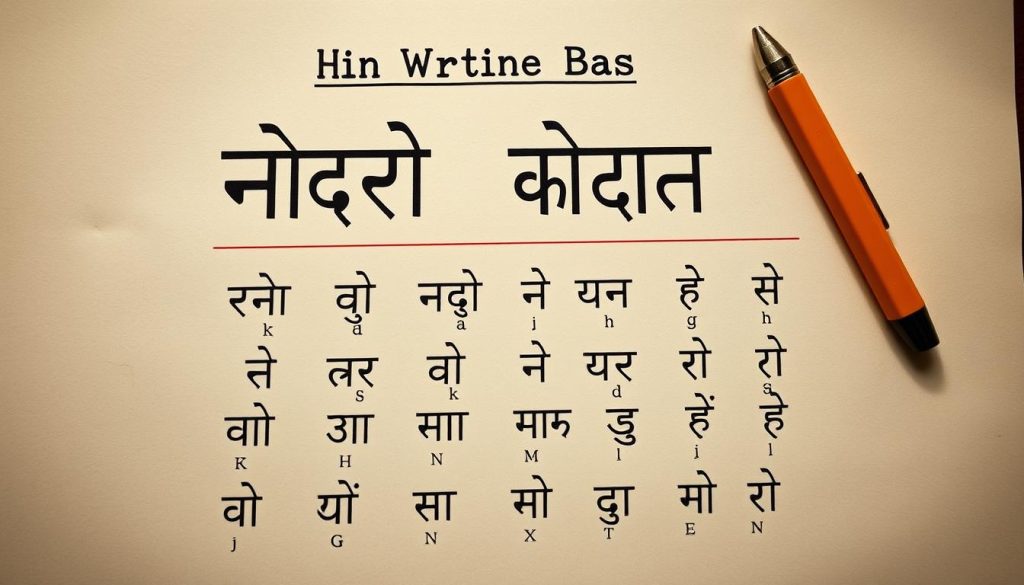 Hin Wrtine Bas
नोदरो कोदात
रनेा वुो नदुो ने यन हे से
k a a j h g h
ते त्नर वो ने यर रो रो
s k d s
वाो उाा साा मारु डु हें हे
K H N M l j l
वो यों सा मो दुा मो रो
j G N X T E N